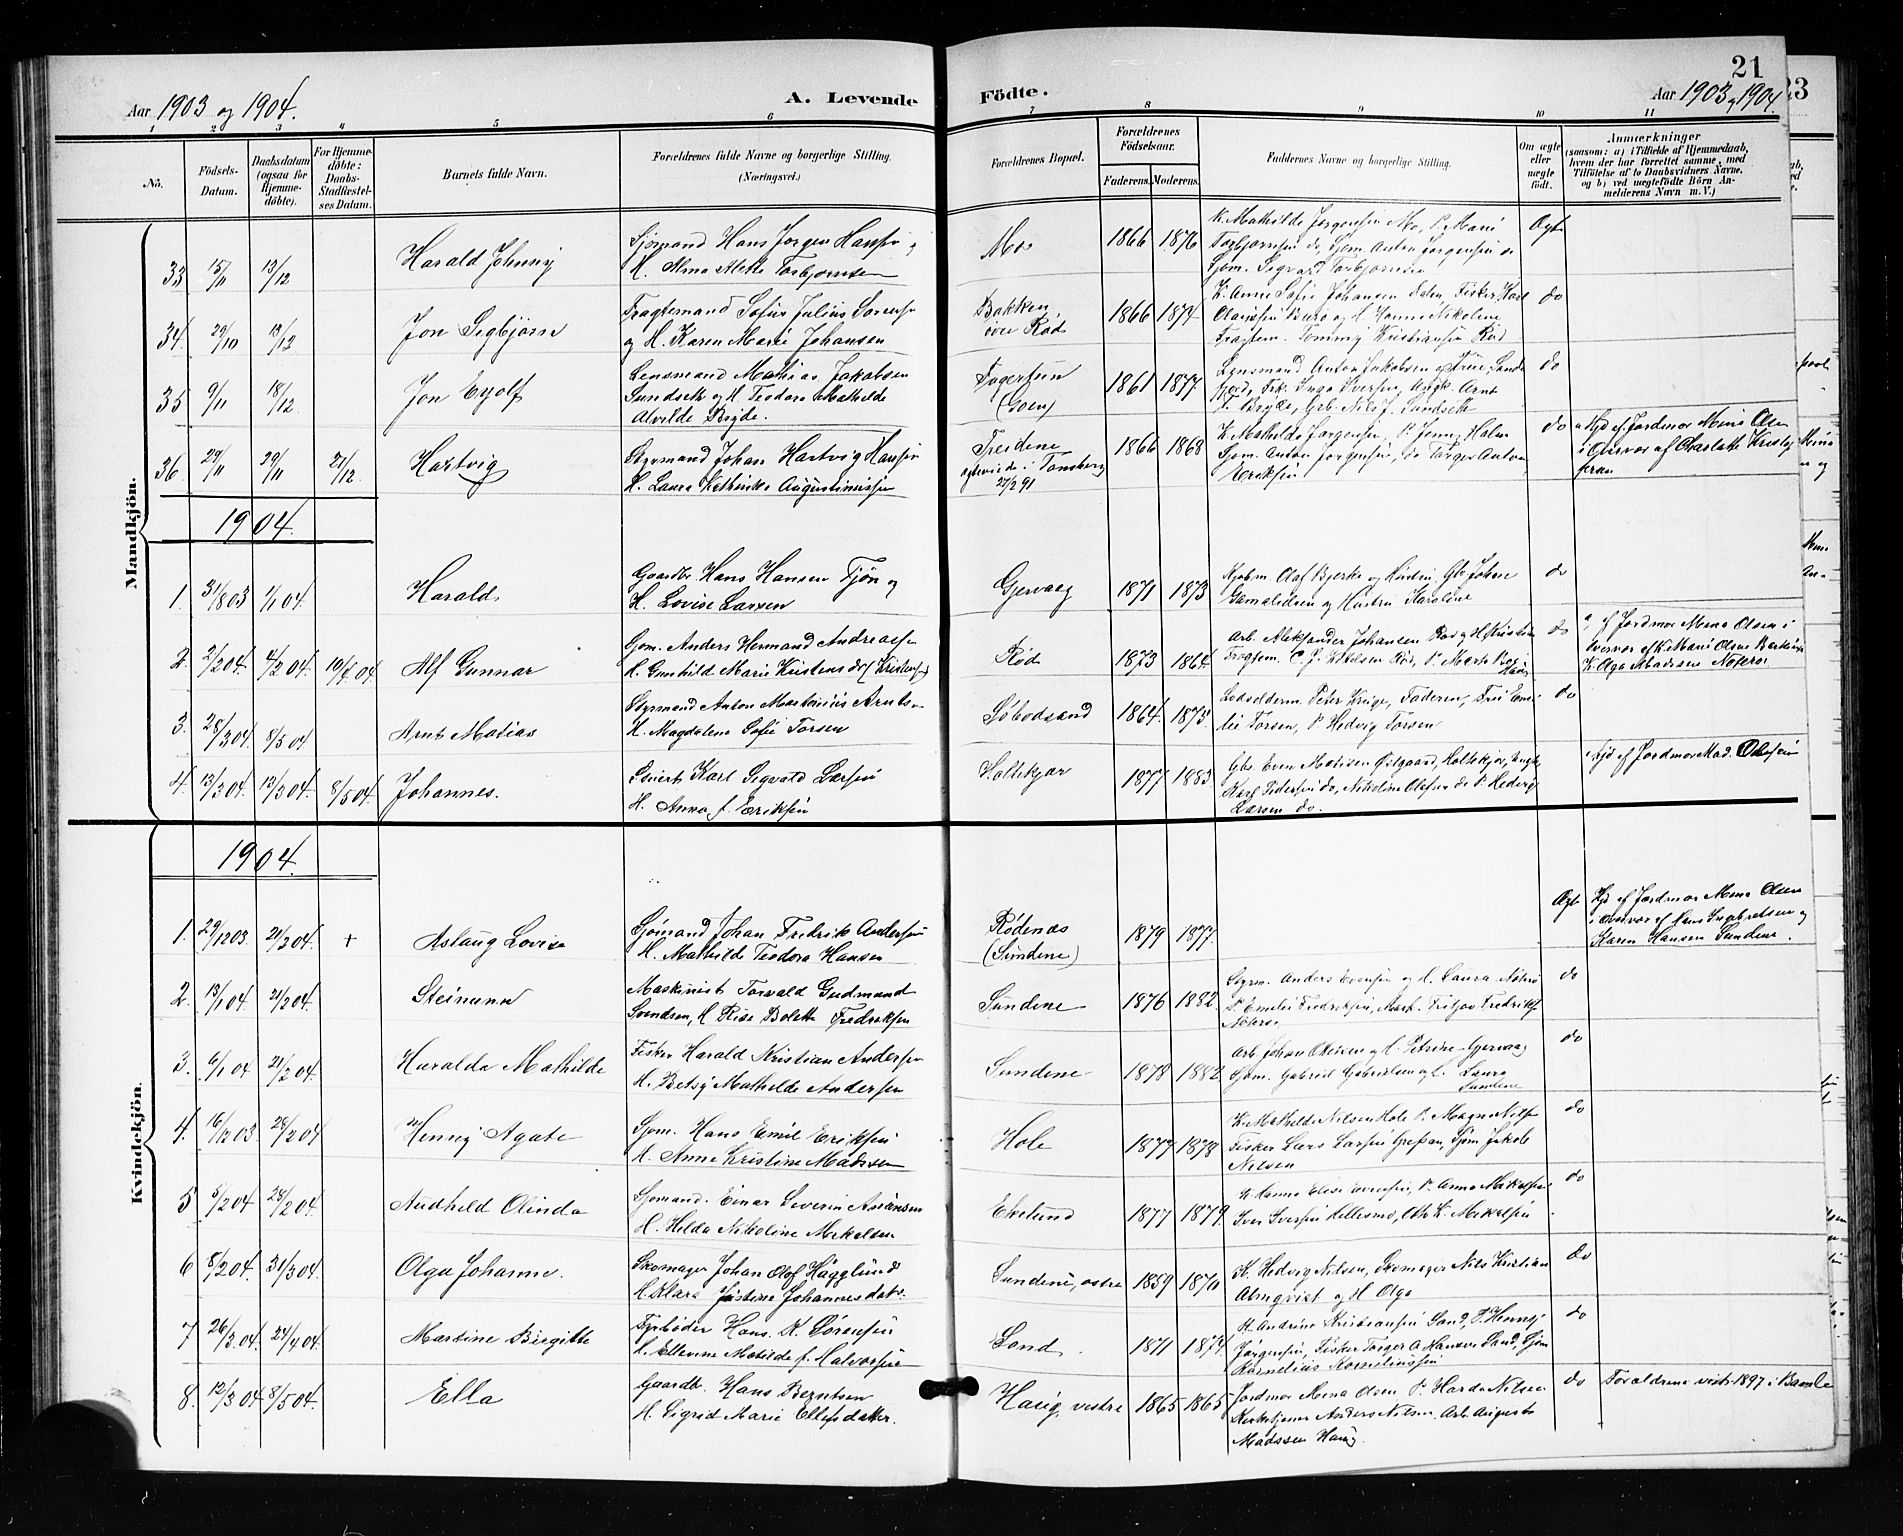 21
Aar 1903 og 1904.
A. Levende
Födte.
Aar 1903 og 1904.
23
1 2 3 4 5 6 7 8 9 10 11
No.
Födsels-
Datum.
Daabsdatum
(ogsaa for
Hjemme-
döbte).
For Hjemme-
döbte:
Daabs-
Stadfæstel-
ses Datum.
Barnets fulde Navn.
Forældrenes fulde Navne og borgerlige Stilling.
(Næringsvei.)
Forældrenes Bopæl.
Forældrenes
Födselsaar.
Faderens. Moderens.
Faddernes Navne og borgerlige Stilling.
Om ægte
eller
uægte
födt.
Anmærkninger
(saasom: a) i Tilfælde af Hjemmedaab,
hvem der har forrettet samme, med
Tilföielse af to Daabsvidners Navne,
og b) ved uægtefödte Börn An-
melderens Navn m. V.)
Mandkjön.
33 15/11 13/12 Harald Johnny
Sjømand Hans Jørgen Hansen
H. Alma Alette Torbjørnsen
Mo 1866 1876
K. Mathilde Jørgensen Mo, P. Marie
Torbjørnsen do, Sjøm. Anton Jørgensen do
Sjøm. Sigvard Torbjørnsen
Ægte
34. 29/10 13/12 Jon Sigbjørn
Fragtemand Sofus Julius Sørensen
og H. Karen Marie Johansen
Bakken
øvre Rød 1866 1874
K. Anne Sofie Johansen, Fisker Karl
Olavssen og H. Hanne Nikoline
Fragtem. Tommy Kristiansen Rød
do
35 9/11 18/12 Jon Eyolf
Lensmand Mathias Jakobsen
Sundseth og H. Teodora Mathilde
Alvilde Bryde.
Fagertun
1861 1877
Lensmand Anton Jakobsen
F. Bryde, Grb. Nils J. Sundseth
do
36. 29/11 29/11 27/12 Hartvig
Styrmand Johan Hartvig Hansen
H. Laura Kathinka Augustinussen
Tredene
ægteviede i Tønsberg
27/2 91 1866 1868
K. Mathilde Jørgensen, P. Jenny Holm
Sjøm. Anton Jørgensen, do Torger Anton
Eriksen
do
Hjd af Jordmor Mina Olsen
i Overvær af Charlotte Kristof
fersen
1904.
1. 31/8 03 1/1 04. Harald
Gaardbr. Hans Hansen Tjøn og
H. Lovise Larsen
Gjervaag 1871 1873
Kjøbm. Olaf Bjerke og Hustru, Gbr Johan
Gamalielsen og Hustru Karoline
do
2. 2/2 04. 4/2 04. 10/4 04 Alf Gunnar
Sjøm. Anders Hermand Andreasen
H. Gunhild Marie Kristensdtr (Kristensen)
Rød 1873 1864
Arb. Aleksander Johansen Rød og H. Kristine
do
af Jordmor Mina Olsen i
Overvær af K. Marie Olsen
K. Olga Madssen Nøterø
3. 28/3 04. 8/5 04. Arnt Matias
Styrmand Anton Martinius Arntsen
H. Magdalene Sofie Torsen
Søbodsand 1864. 1873.
Lodsolderm. Peter Krüge, Faderen, Frü Emi
lie Torsen, P. Hedvig Torsen
do
4. 13/3 04. 13/3 04. 8/5 04. Johannes.
Karl Sigvald Larsen
H. Anna f. Eriksen
Holtekjær 1877 1883
Gbr. Even Madssen Østgaard, Holtekjær, Ungk.
Karl Pedersen do, Nikoline Olafsen do P. Hedvig
Larsen do.
Hjd af Jordmor Mad. Olsen
Kvindekjön.
1904.
1. 29/12 03. 21/2 04. + Aslaug Lovise
Sjømand Johan Fredrik Andersen
H. Mathilde Teodora Hansen
Rødenæs
(Sundene) 1879 1877.
Ægte
Hjd af Jordmor Mina Olsen
i Overvær af Hans Ingebretsen og
Karen Hansen Sundene.
2. 13/1 04. 21/2 04. Steinunn
Maskinist Torvald Gudmand
Svendsen, H. Elise Bolette Fredriksen
Sundene 1876 1882.
Styrm. Anders Evensen og H. Laura Nøterø
P. Emilie Fredriksen, Mask. Fritjov Fredriks.
Nøterø
do
3. 6/1 04 21/2 04. Haralda Mathilde
Fisker Harald Kristian Andersen
H. Betsy Mathilde Andersen
Sundene 1878 1882
Arb. Johan Ottesen og H. Petrine Gjervaag
Sjøm. Gabriel Gabrielsen og H. Laura
Sundene
do
4. 16/12 03 28/2 04 Henny Agate
Sjøm. Hans Emil Eriksen
H. Anne Kristine Madssen
Hole 1877 1878
K. Mathilde Nilsen Hole P. Magna Nilsen
Fisker Lars Larsen Grefsan, Sjøm Jakob
Nilsen
do
5 5/2 04. 28/2 04. Audhild Olinda
Sjømand. Einar Severin Asiansen
H. Hilda Nikoline Mikelsen
Ekelund 1877 1879.
K. Hanna Elise Evensen, P. Anna Mikelsen
Iver Iversen Hellesmo, Otto K. Mikelsen
do
6 8/2 04. 31/3 04. Olga Johanne.
Skomager Johan Olof Hägglund
H. Klara Justine Johannesdatr.
Sundene, østre 1859 1870
K. Hedvig Nilsen, Skomager Nils Kristian
Almqvist og H. Olga
do
7 26/3 04. 24/4 04. Martine Birgitte
Fyrbøder Hans. K. Sørensen
H. Ellevine Matilde f. Halvorsen
Sand. 1871 1874.
H. Andrine Kristiansen Sand, P. Henny
Jørgensen, Fisker Torger A Hansen Sand, Sjøm
Kornelius Kornelinssen
do
8. 12/3 04 8/5 04. Ella
Gaardbr. Hans Berntsen
H. Sigrid Marie Ellefsdatter.
Hasig, vestre 1865 1865
Jordmor Mina Olsen P. Harda Nilsen
Kirketjener Anders Nilsen. Arb. August
Madssen Hasig.
do
Forældrene viet 1897 i Bamle